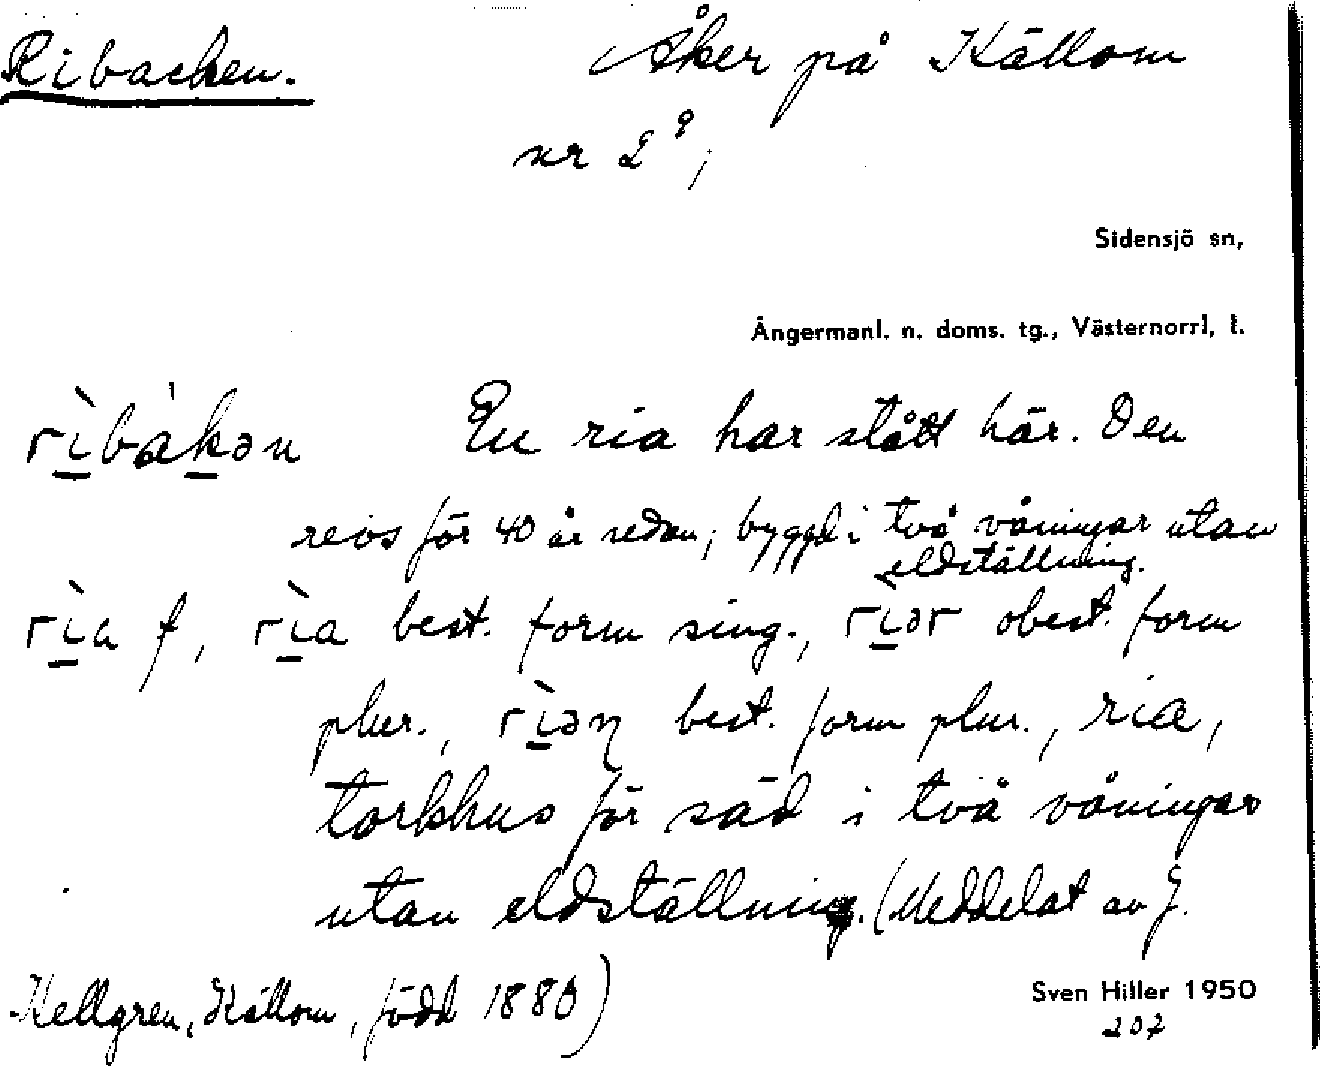 Ribacken.
Åker på Källom
nr 2⁹;
Sidensjö sn,
Ångermanl. n. doms. tg., Västernorrl. l.
rìbàkən En ria har stått här. Den
revs för 40 år sedan; byggd i två våningar utan
eldställning.
rìa f, rìa best. form sing., rìər obest. form
plur., rìəɳ best. form plur., ria,
torkhus för säd i två våningar
utan eldställning. (Meddelat av J.
Kellgren, Källom, född 1880)
Sven Hiller 1950
207